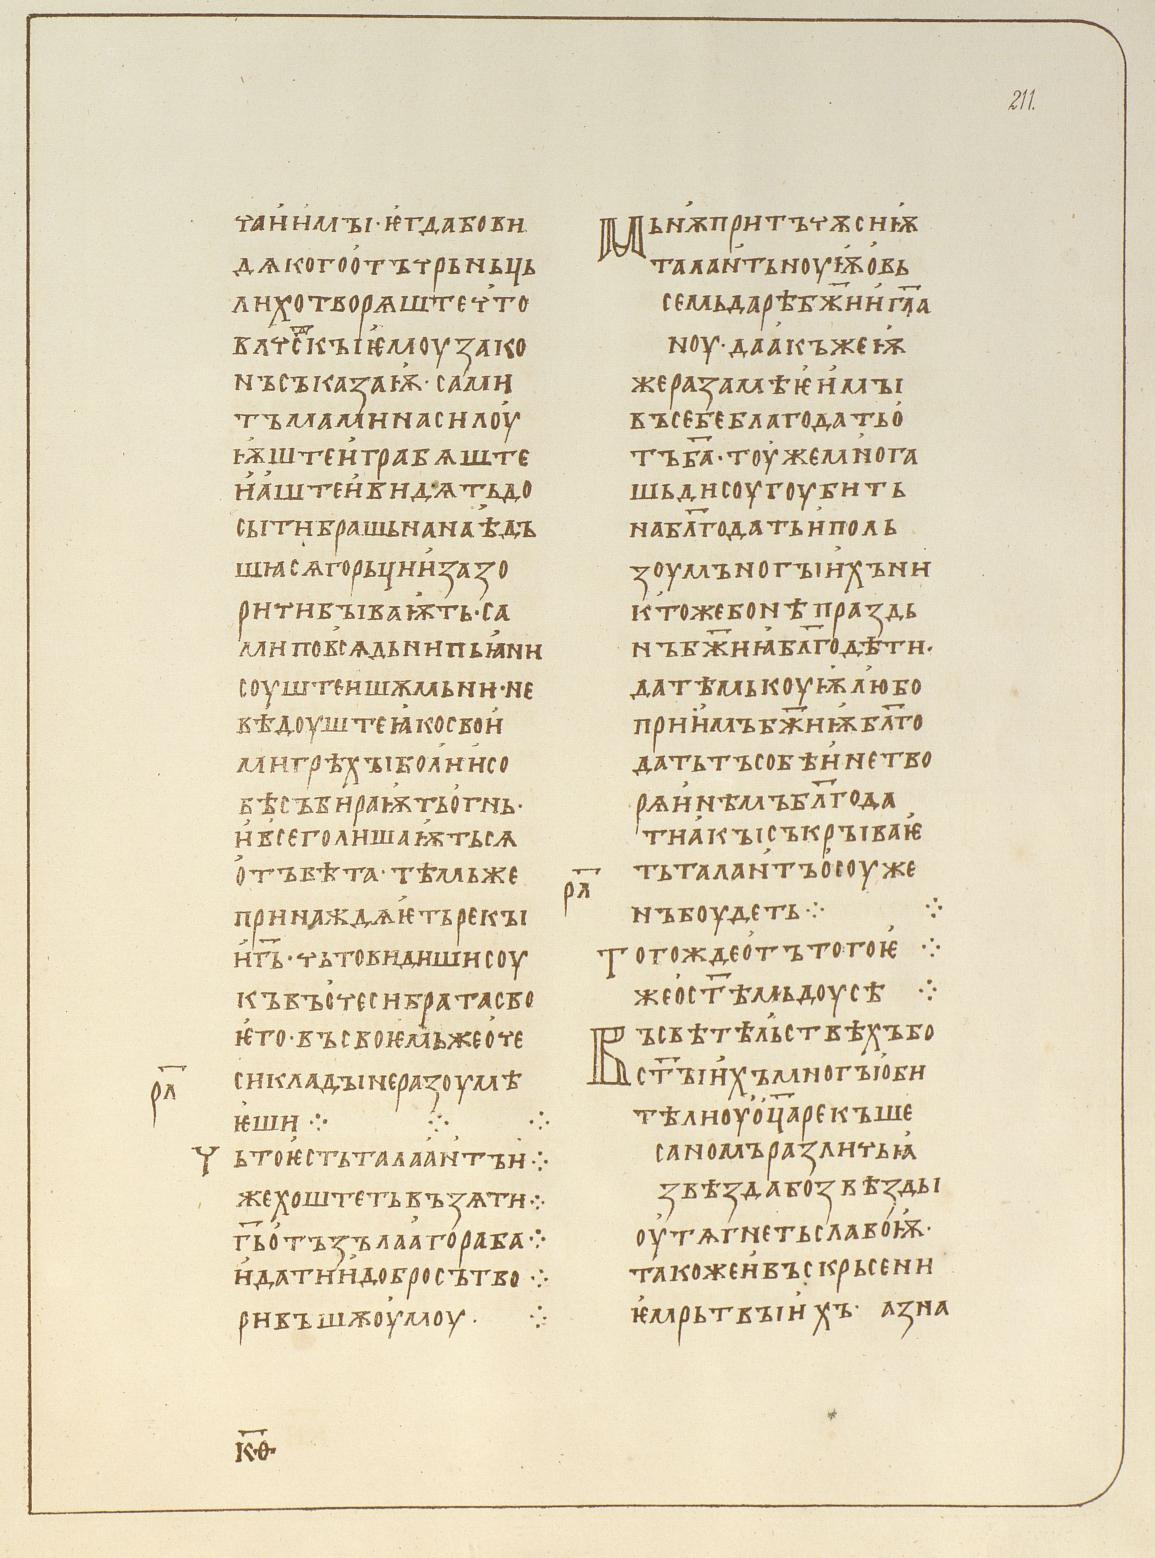 211.
чаи имъі· ѥгда бо ви
дѧ кого отъ трьньць
лихо творѧште что
влчскъі ѥмоу зако
нъ съказаѭ· сами
тъмами на силоу
ѭште и грабѧште
и аште и видѧть до
сыти брашьна наѣдъ
шасѧ горьции зазо
ричиви бъіваѭть· са
ми по всѧ дьни пьꙗни
соуште и шѫмьни· не
вѣдоуште ꙗко свои
ми грѣхъі болии со
бѣ събираѭть огнь·
и всего лишаѭтьсѧ
отъвѣта· тѣмьже
принаждѧѥть рекъі
и г҃ь· чьто видиши соу
къ въ очеси брата сво
ѥго· въ своѥмь же оче
си кладъі не разоумѣ
ѥши ⁘ ⁘ ⁘
р҃л
Чьто ѥсть талаантъ и ⁘
же хоштеть възѧти ⁘
г҃ь отъ зълааго раба ⁘
и дати и добро сътво ⁘
ривъшѫоумоу· ⁘
к҃ѳ
Мьнѫ притъчѫ сиѭ
талантьноуѭ овь
семь даръ бж҃ии гл҃а
ноу· да акъже ѭ
же разамѣѥимъі
въ себе благодать о
тъ б҃а· тоуже многа
шьди соугоубить
на бл҃годать и поль
зоу мъногъіихъ ни
ктоже бо нѣ праздь
нъ бж҃иꙗ бл҃годѣти·
да тѣмь коуѭ любо
приимъ бж҃иѭ бл҃го
дать тъ собѣи не тво
рѧи нѣмъ бл҃года
ти акъі съкръіваѥ
ть талантъ осоуже
нъ боудеть ⁘ ⁘
р҃л
Тогожде отъ того ѥ ⁘
же о ст҃ѣмь доусѣ ⁘
Въ свѣтѣльствѣхъ бо
ст҃ъіихъ многъі оби
тѣли оу оц҃а рекъше
саномъ различьꙗ
звѣзда бо звѣзды
оутѧгнеть славоѭ·
такоже и въскрьсени
ѥ мрьтвъіихъ· аз на